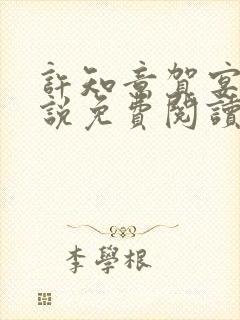 許知意賀宴
說免費閱讀
李學根